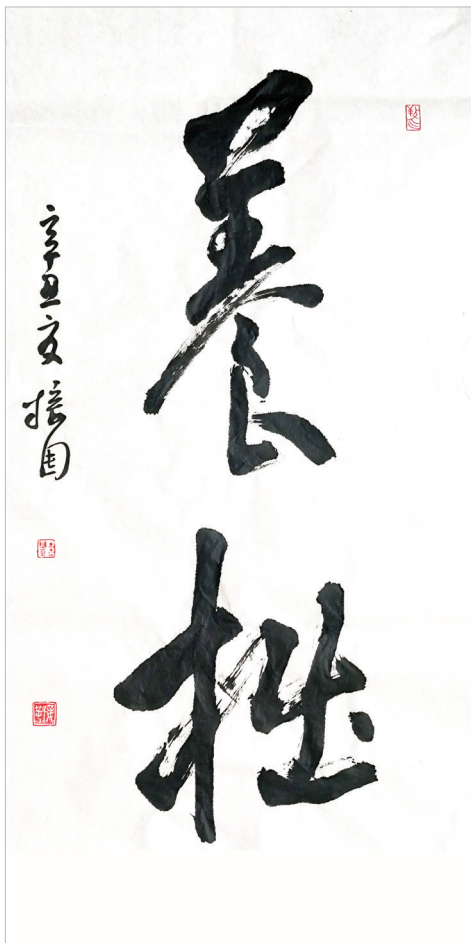 養拙
辛丑夏振国